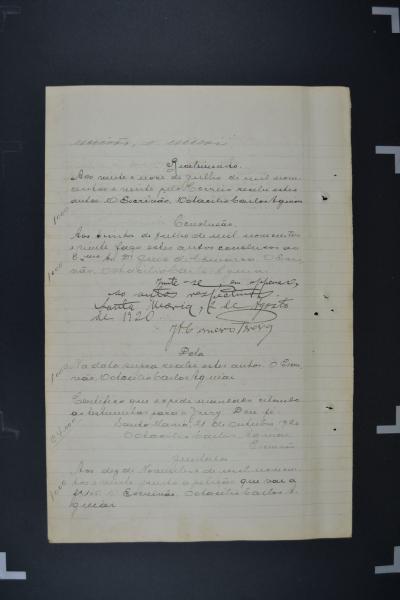 Recebimento.
Aos vinte e nove de Julho de mil nove
centos e vinte pelo Correio recebi estes
autos. O Escrivão, Octacilio Carlos Aguiar
1000
Conclusão.
Aos trinta de Julho de mil novecentos
e vinte faço estes autos conclusos ao
Juiz de Comarca. O Escri
vão, Octacilio Carlos Aguiar
1000
Junte-se, em appenso,
ao autos
Santa Maria, 2 de Agosto
de 1920.
Data
Na data supra recebi estes autos. O Escri
vão, Octacilio Carlos Aguiar
1000
Certifico que expedi mandado citando
as testemunhas para o Jury. Dou fé.
Santa Maria, 21 de Outubro, 920
Octacilio Carlos Aguiar
Escrivão
Juntada
Aos dez de Novembro de mil novecen
tos e vinte junto a petição que vai a
O Escrivão, Octacilio Carlos A
guiar
1000